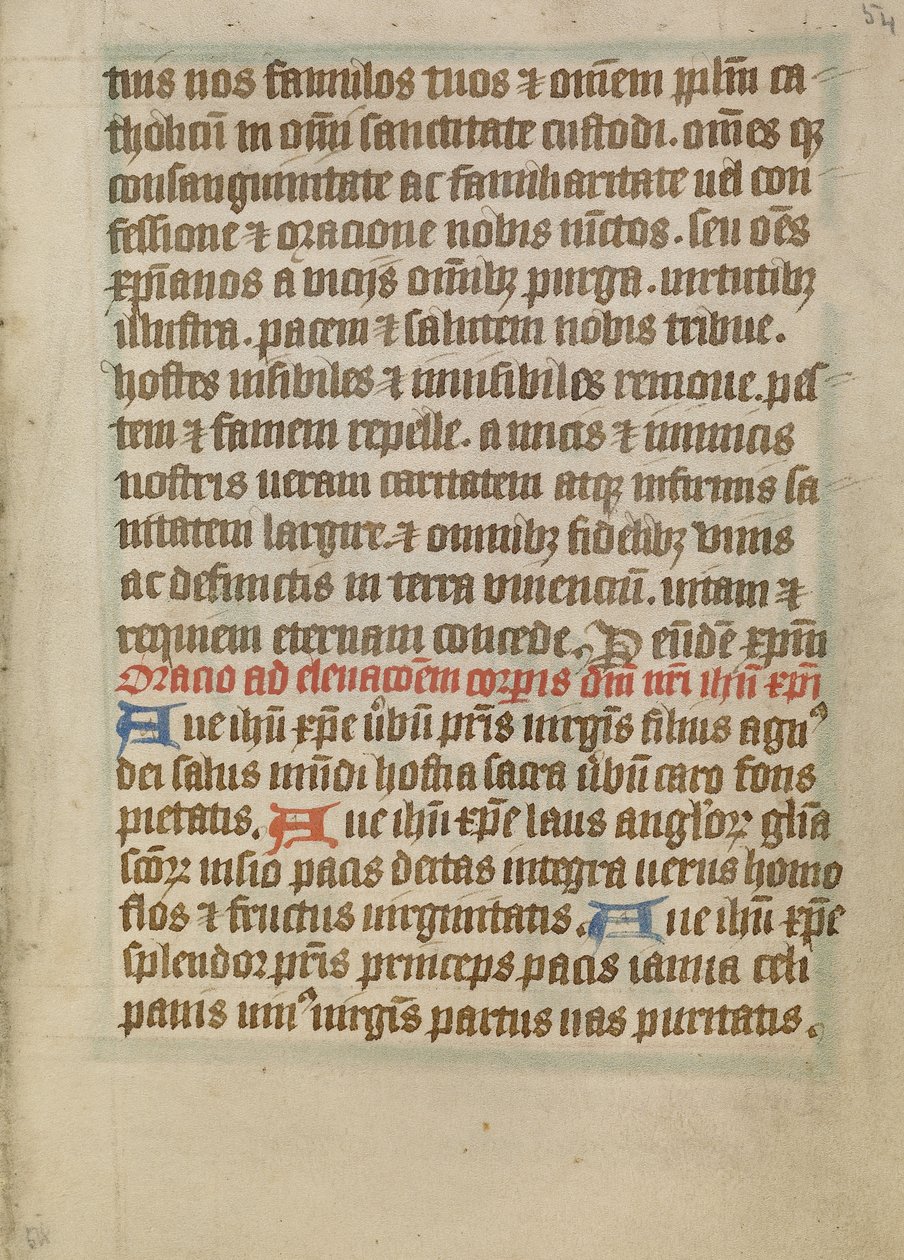 54
tuis nos famulos tuos ⁊ om̄em pplm̄ ca
tholicū in om̄i sanctitate custodi. om̄es qꝫ
consanguinitate ac familiaritate uel con
fessione ⁊ oracione nobis iūctos. seu oēs
xp̄ianos a vicijs om̄ibꝫ purga. uirtutibꝫ
illustra. pacem ⁊ salutem nobis tribue.
hostes uisibiles ⁊ inuisibiles remoue. pes
tem ⁊ famem repelle. amicis ⁊ inimicis
nostris ueram caritatem atqꝫ infirmis sa
nitatem largire. ⁊ omnibꝫ fidelibꝫ viuis
ac defunctis in terra viuenciū. uitam ⁊
requiem eternam concede. P eūdē xp̄m
Oracio ad eleuacōem corpis dn̄i nr̄i ihū xp̄i
Aue ihū xp̄e u̓bū pr̄is uirgīs filius agnꝰ
dei salus mūdi hostia sacra u̓bū caro fons
pietatis. Aue ihū xp̄e laus angl̓oꝝ glīa
scōꝝ uisio pacis deitas integra uerus homo
flos ⁊ fructus uirginitatis. Aue ihū xp̄e
splendor pr̄is princeps pacis ianua celi
panis uiuꝰ uirgīs partus uas puritatis.